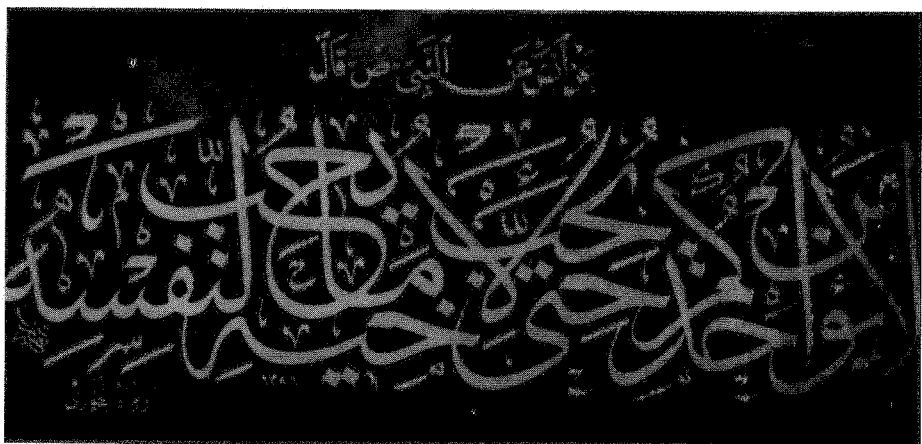 عَنْ أَنَسٍ عَنِ النَّبِيِّ ص قَالَ
لا يؤمن أحدكم حتى يحب لأخيه ما يحب لنفسه